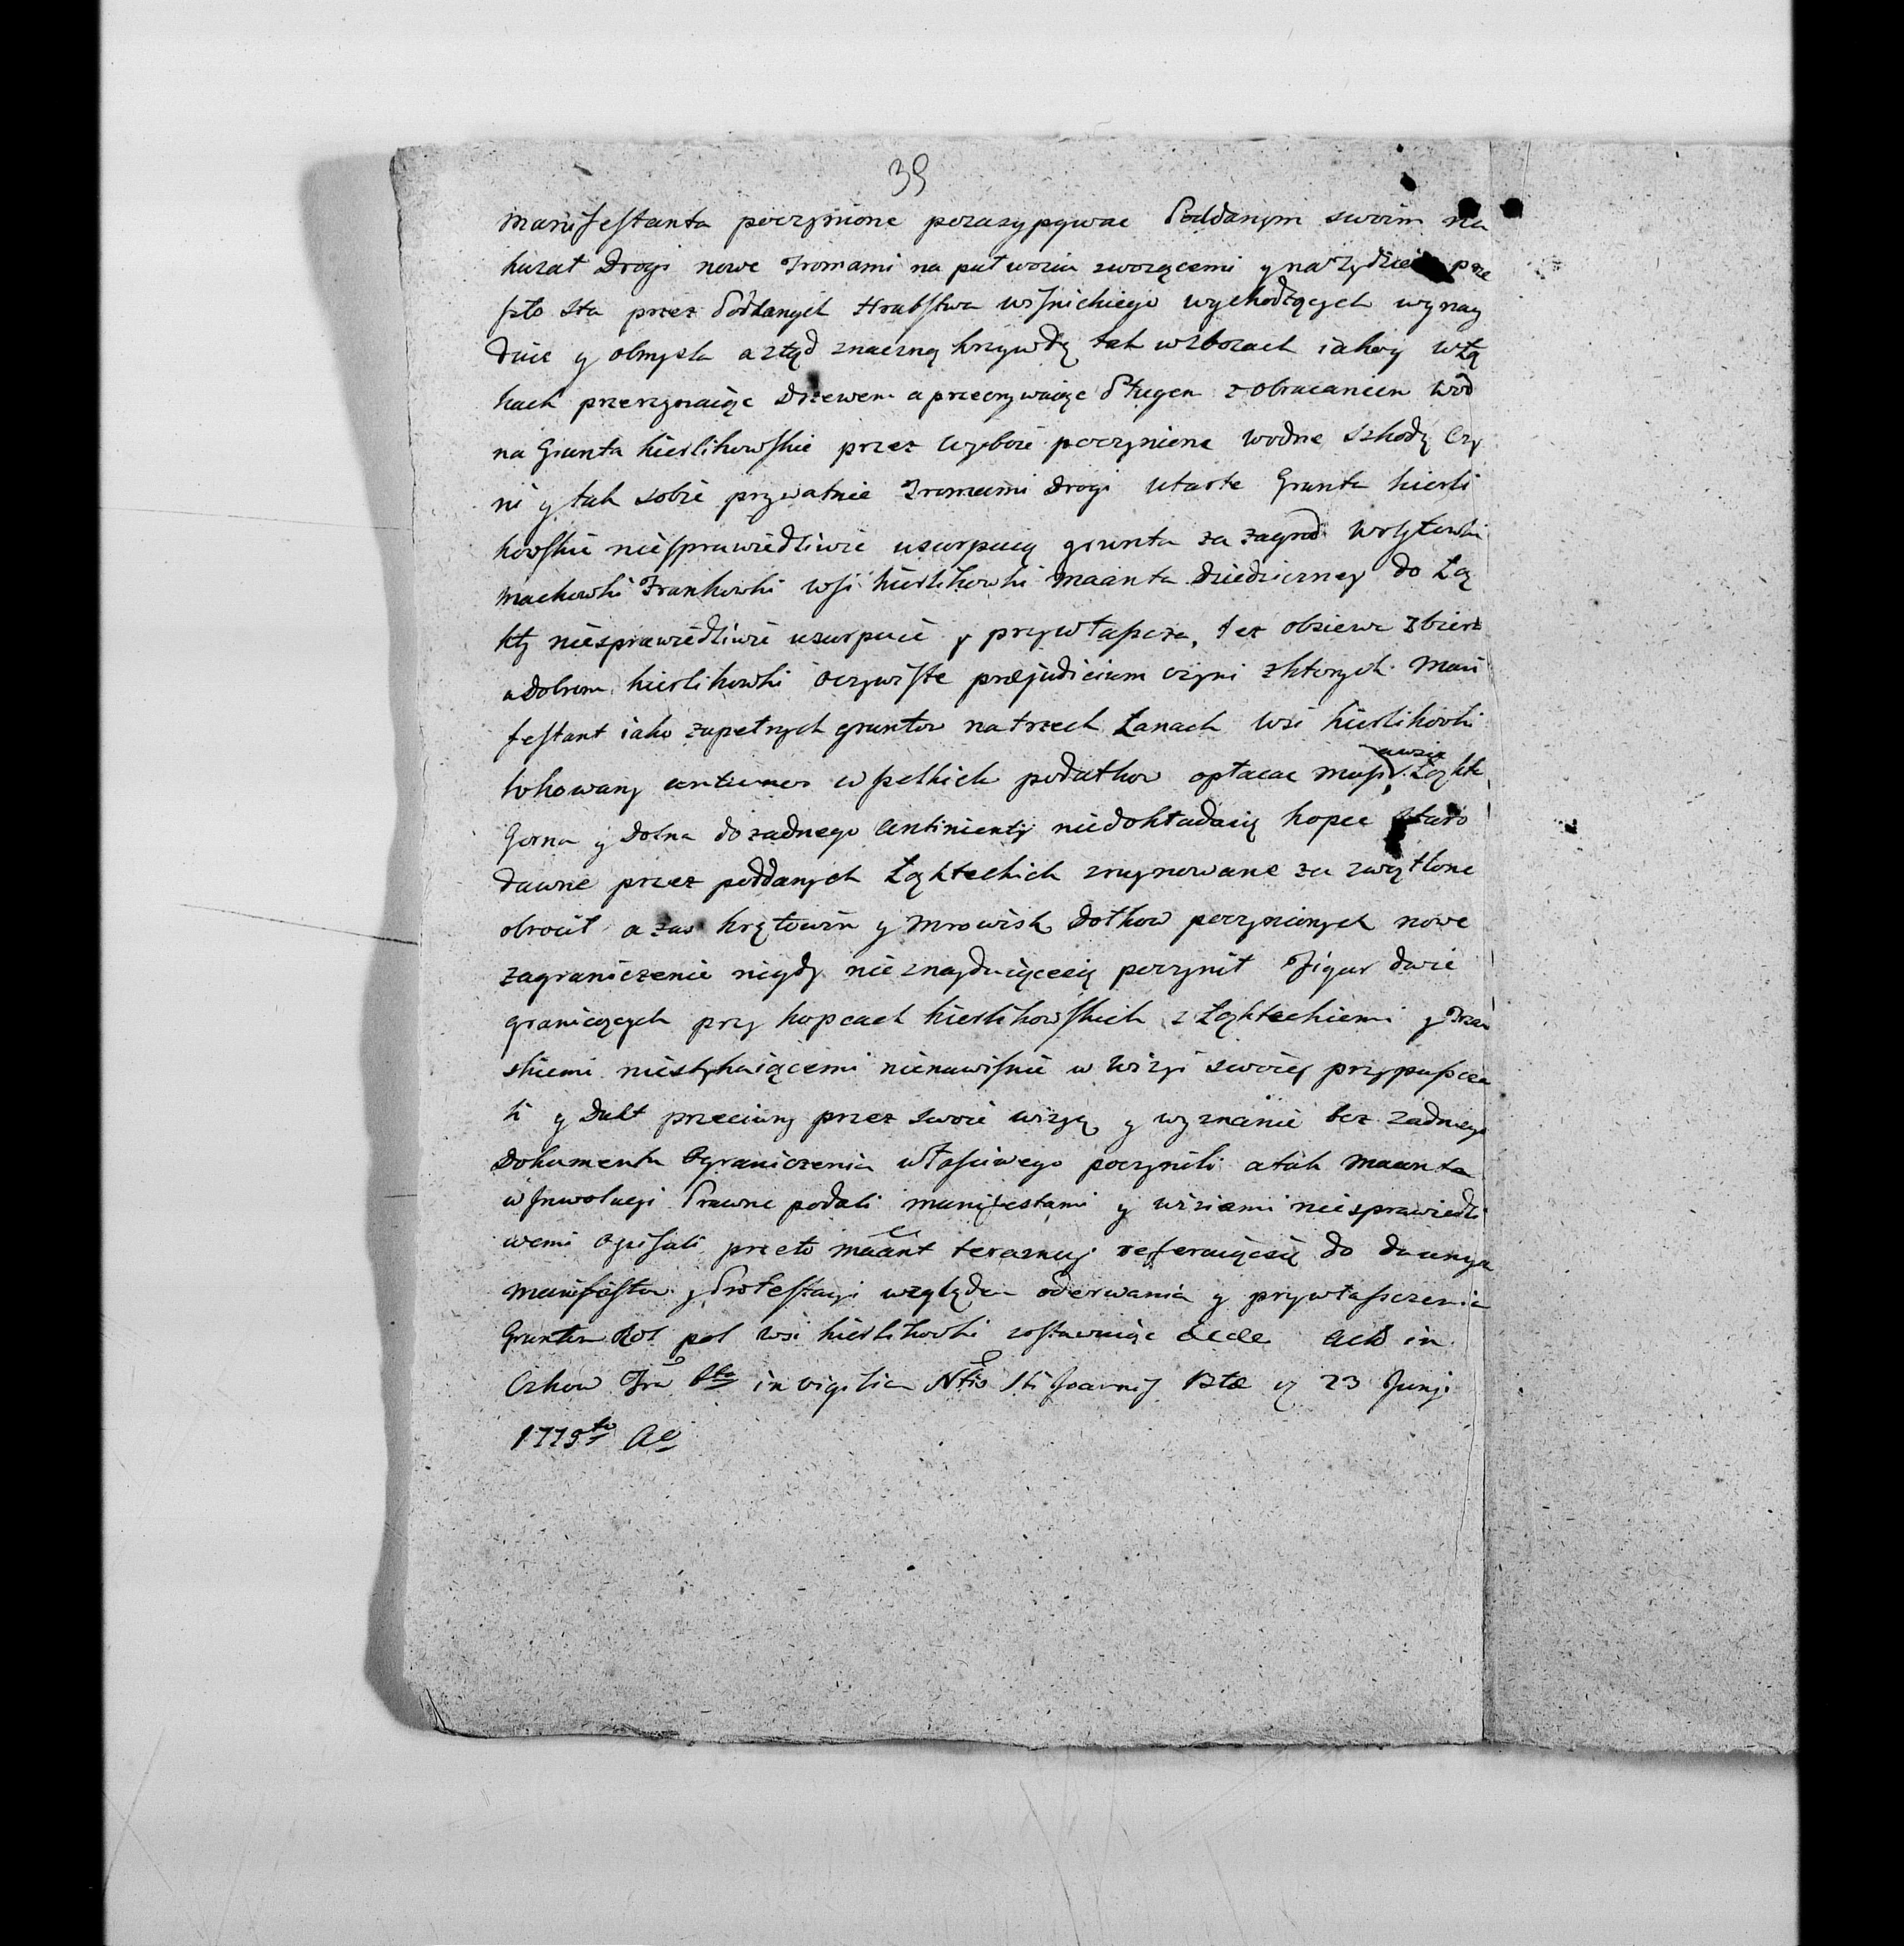 39
Manifestanta poczynione pozasypywac Poddanym swoim na
kazat Drogi nowe Tromami na put wozia zworzącemi y na Tydzień prze
szło sta przez Poddanych Hrabstwa wisnickiego wychodzących wynay
duie y obmysla a ztąd znaczną krzywdę tak w zborach iako y w Łą
kach przerzynaiąc Drzewem a przeorywaiąc Pługem z obracaniem wod
na Grunta kierlikowskie przez wyboie poczynione wodne szkody Czy
ni y tak sobie prywatnie Tromami Drogi utarte Grunta kierli
kowskie niesprawiedliwie usurpuią grunta za zagrod Woytowski
Mackowki Frankowki wsi kierlikowki Maanta Dziedziczney do Łą
kty niesprawiedliwie usurpuie y przywłaszcza, Jez obsiewa zbiera
a dobrom kierlikowki oczywiste præjudicium czyni z ktorych Mani
festant iako zupełnych gruntow na trzech Łanach wsi kierlikowki
lokowany wszelkich podatkow opłacac musi a wsie Łąkta
Gorna y Dolna do zadnego niedokładaią kopce staro
dawne przez poddanych Łąkteckich zruynowane za zwątlone
obrocił a zas kretowin y Mrowisk Dołkow poczynionych nowe
zagraniczenie nigdy nie znayduiącesię poczynił Figur dwie
graniczących przy kopcach kierlikowskich z Łąkteckiemi y Trzci
skiemi niestykaiącemi nienawisnie w wizyi swoiey przypuszcza
li y Dukt przeciwny przez swoie wizyą y wyznanie bez zadnego
Dokumentu Ograniczenia właściwego poczynili a tak Maanta
w Jnwolucyi Prawne podali manifestami y wiziami niesprawiedli
wemi opisali przeto Maant teraznieyszy referuiącsię do dawnych
Manifestow y Protestacyi względem oderwania y przywłaszczenia
Gruntow Rol pol wsi kierlikowki zostawuiąc Actt in
Czhow Fra in vigilia Ntis Sti Joannis Btæ 23 Junj
1779 Ao